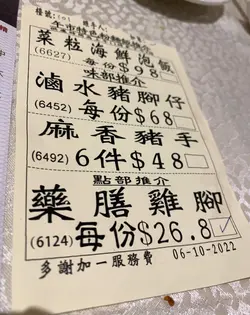 檯號:(0)
經手人:
午市特色粉麵飯推介
菜粒海鮮泡飯
(6627) 每份$98
味部推介
滷水豬腳仔
(6452) 每份$68
麻香豬手
(6492) 6件$48
點部推介
藥膳雞腳
(6124) 每份$26.8
多謝加一服務費
06-10-2022